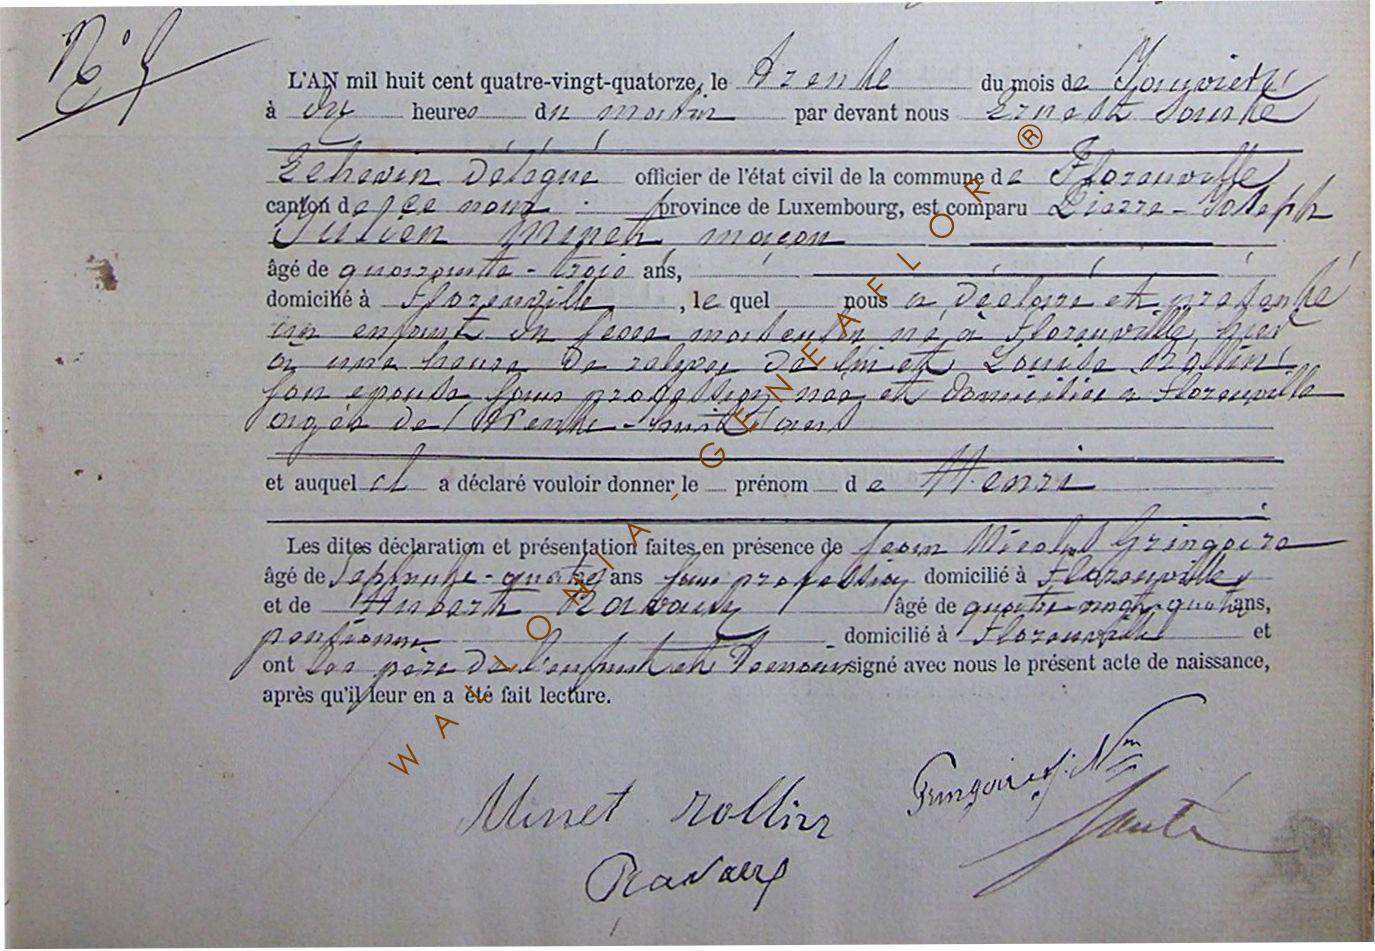 N° 5
L'AN mil huit cent quatre-vingt-quatorze, le trente du mois de Janvier
à dix heures du matin par devant nous Ernest Santé
Echevin délégué officier de l'état civil de la commune de Florenville
canton de ce nom province de Luxembourg, est comparu Pierre-Joseph
Julien Minet maçon
âgé de quarante-trois ans,
domicilié à Florenville, le quel nous a déclaré et présenté
un enfant du sexe masculin né à Florenville, hier
à une heure de relevée de lui et Louise Rollin
son épouse sans profession née et domiciliée à Florenville
âgée de trente-huit ans
et auquel il a déclaré vouloir donner le prénom de Henri
Les dites déclaration et présentation faites en présence de Jean Nicolas Gringoire
âgé de Septante-quatre ans sans profession domicilié à Florenville
et de Hubert Ravaux âgé de quatre-vingt-quatre ans,
pensionné domicilié à Florenville et
ont les père de l'enfant et témoins signé avec nous le présent acte de naissance,
après qu'il leur en a été fait lecture.
Minet rollin
Gringoire J. N
Santé
Ravaux
WALLONIA-GENEAFLOR ®